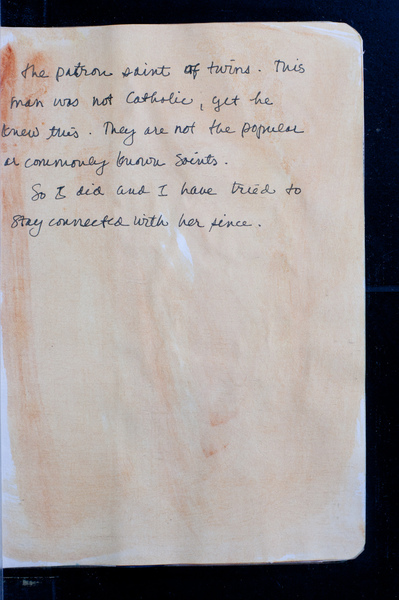 the patron saint of twins. This
man was not Catholic, yet he
knew this. They are not the popular
or commonly known Saints.
So I did and I have tried to
stay connected with her since.